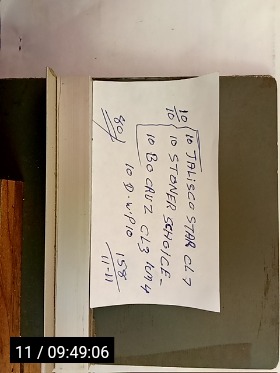 10/10 10 JALISCO STAR CL 7
10 STONER SCHOICE-
10 BO CRUZ CL3 1074
10 D.W.P 10
80/
158
11-11
11 / 09:49:06